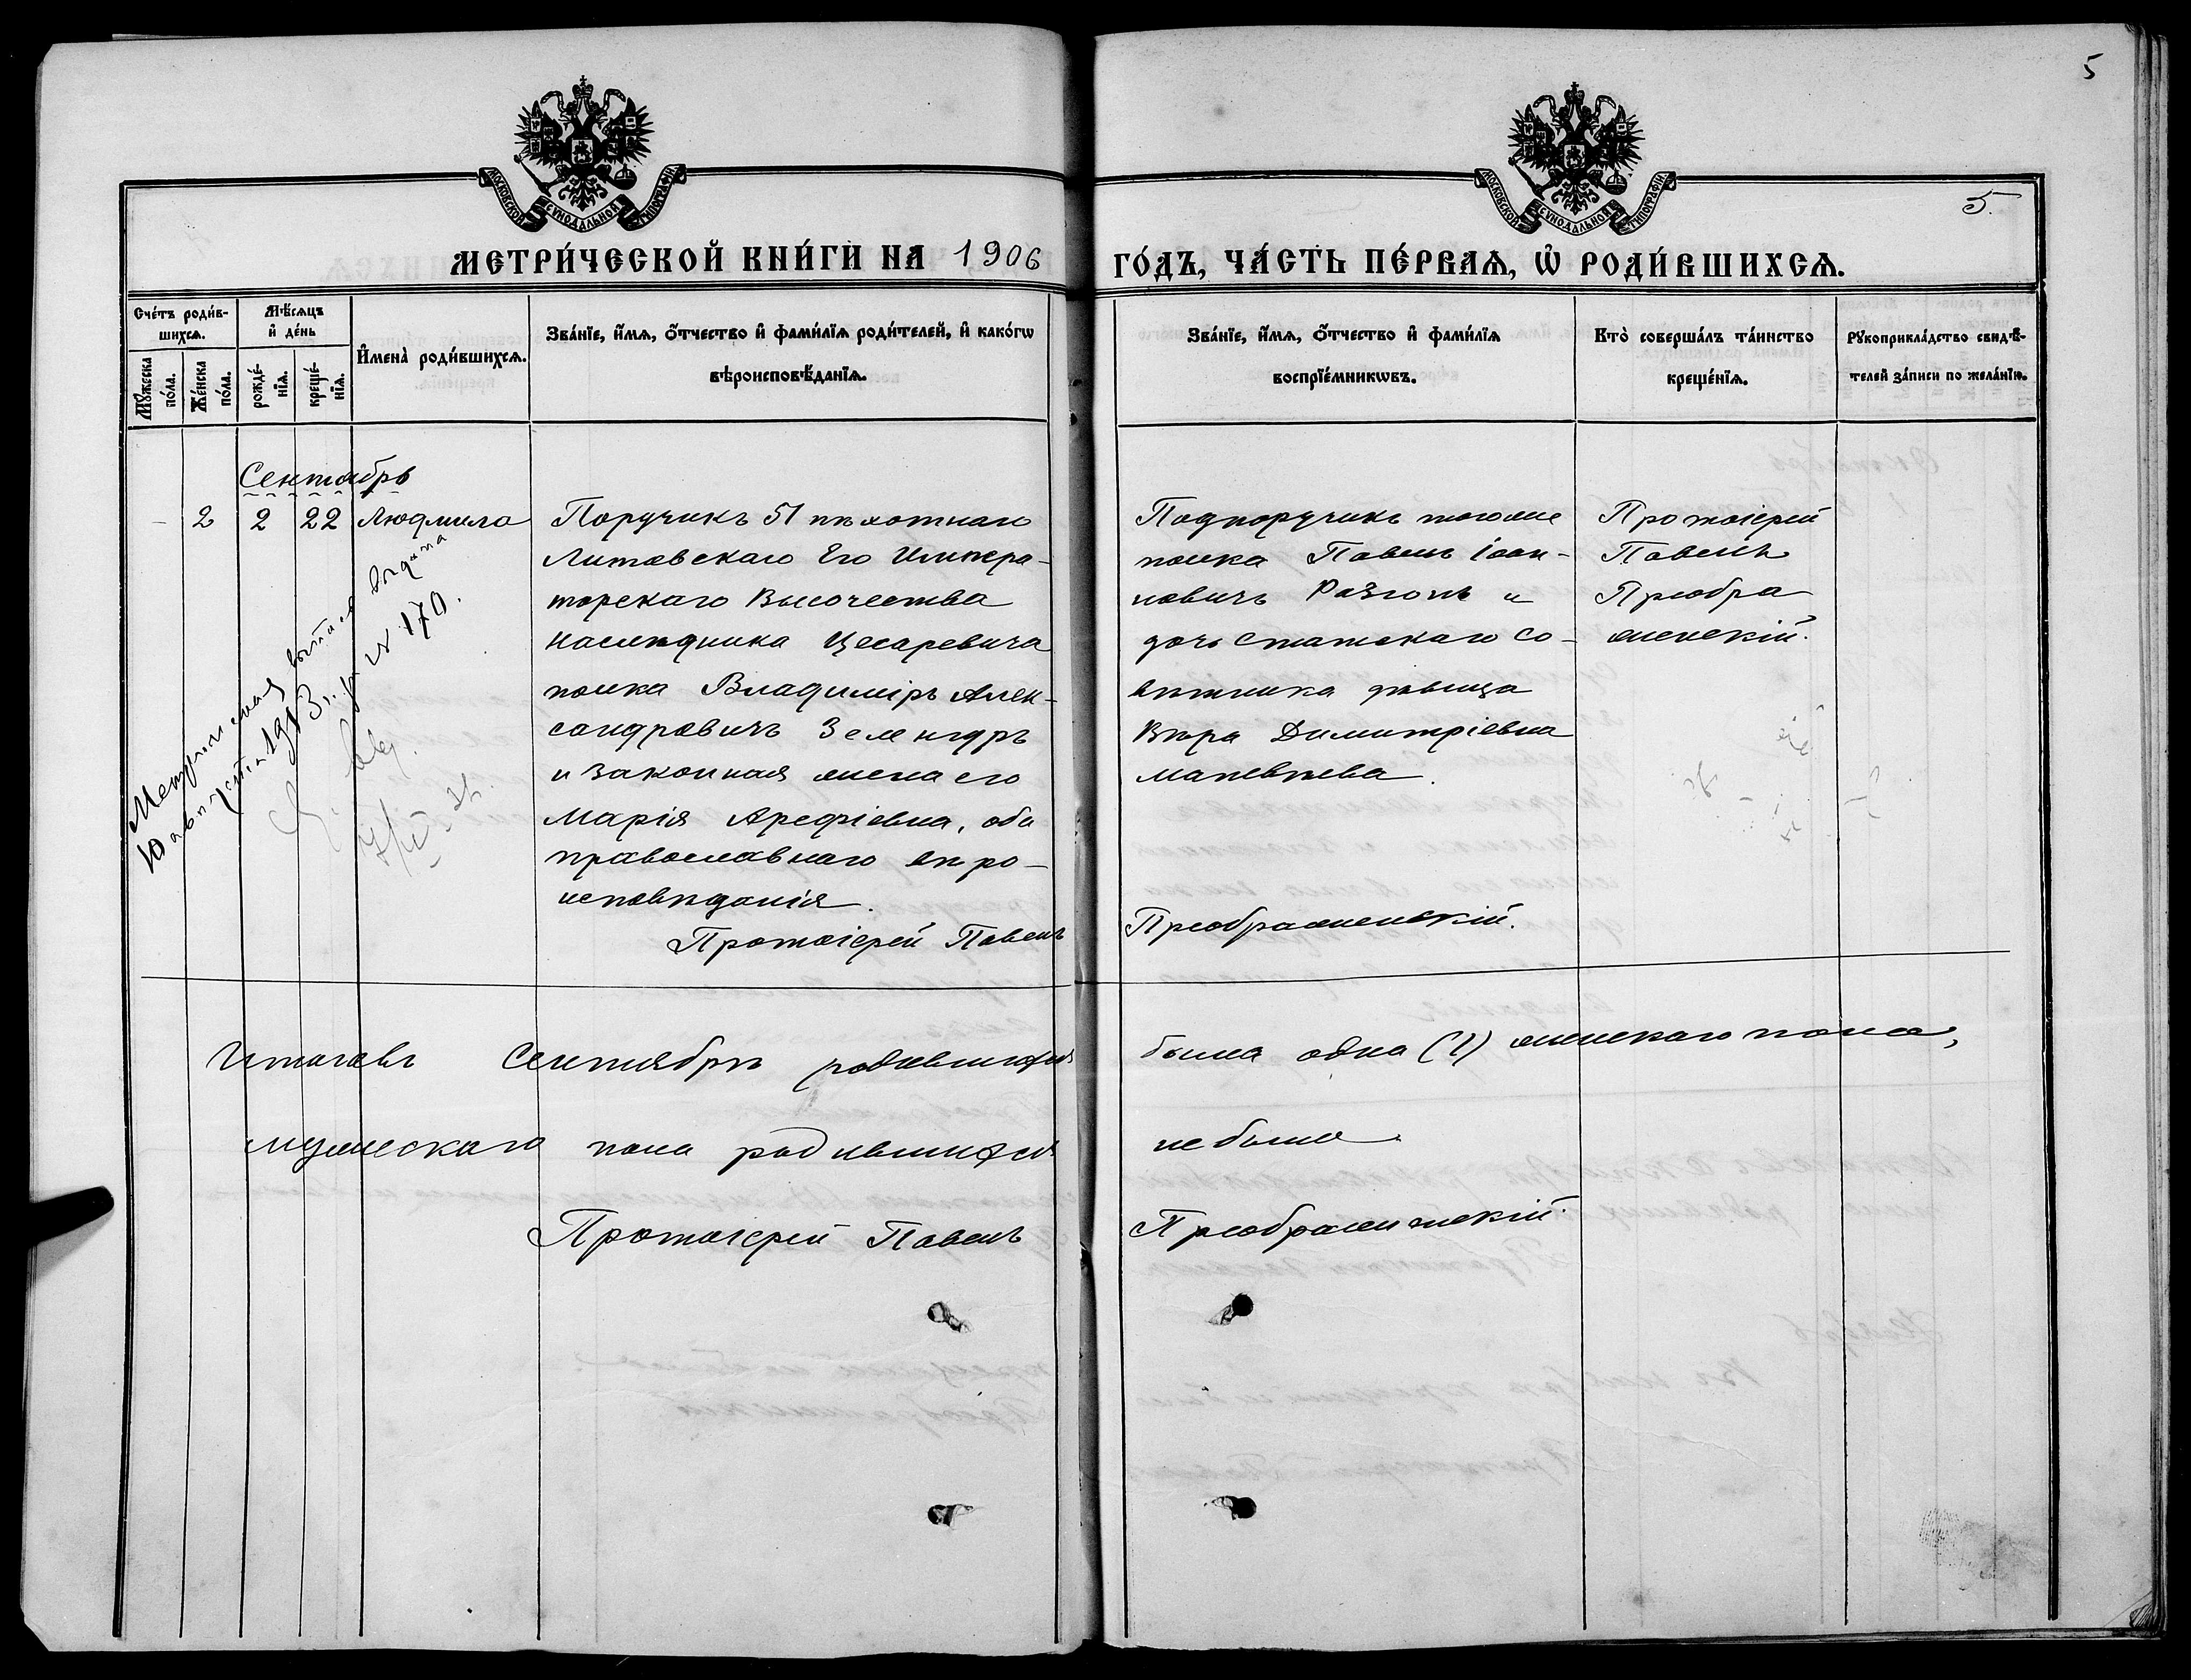 5
5.
МОСКОВСКОЙ СѴНОДАЛЬНОЙ ТИПОГРАФІИ
МОСКОВСКОЙ СѴНОДАЛЬНОЙ ТИПОГРАФІИ
МЕТРИ́ЧЕСКОЙ КНИ́ГИ НА 1906 ГО́ДЪ, ЧА́СТЬ ПЕ́РВАѦ, Ѡ҆ РОДИ́ВШИХСѦ.
Сче́тъ роди́в-
шихсѧ.
Мꙋ́жеска
по́ла.
Же́нска
по́ла.
Мѣ́сѧцъ
и҆ де́нь
рожде́-
нїѧ.
креще́-
нїѧ.
И҆мена̀ роди́вшихсѧ.
Зва́нїе, и҆́мѧ, ѻ҆́тчество и҆ фами́лїѧ роди́телей, и҆ како́гѡ
вѣроисповѣ́данїѧ.
Зва́нїе, и҆́мѧ, ѻ҆́тчество и҆ фами́лїѧ
воспрїе́мникѡвъ.
Кто̀ соверша́лъ та́инство
креще́нїѧ.
Рꙋкоприкла́дство свидѣ́-
телей за́писи по жела́нїю.
Сентябрь
- 2 2 22 Людмила
Поручикъ 51 пѣхотнаго
Литовскаго Его Импера-
торскаго Высочества
Наслѣдника Цесаревича
полка Владиміръ Алек-
сандровичъ Зелендръ
и законная жена его
Марія Арефіевна, оба
православнаго вѣро-
исповѣданія.
Подпоручикъ тогоже
полка Павелъ Іоан-
новичъ Разгонъ и
дочь Статскаго Со-
вѣтника дѣвица
Вѣра Димитріевна
Матвѣева.
Протоіерей
Павелъ
Преобра
женскій.
Протоіерей Павелъ Преображенскій.
выпись выдана
1913 г. № 170.
Итого въ Сентябрѣ родившихся была одна (1) женскаго пола,
мужескаго пола родившихся не было.
Протоіерей Павелъ Преображенскій.